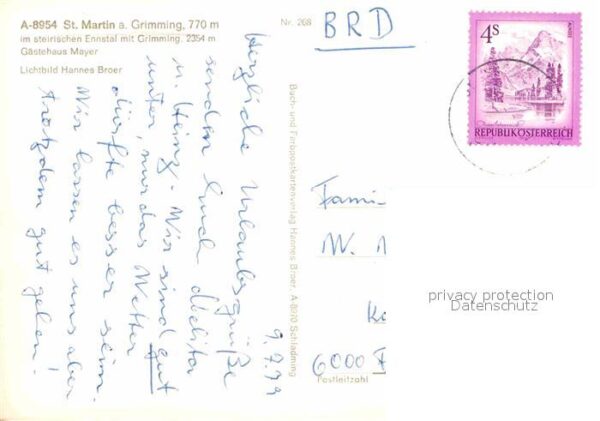 A-8954 St. Martin a. Grimming, 770 m
im steirischen Ennstal mit Grimming, 2354 m
Gästehaus Mayer
Lichtbild Hannes Broer
Nr. 268
Buch- und Fotopostkartenverlag Hannes Broer, A 8970 Schladming
9.7.79
Herzliche Urlaubsgrüße
senden Euch Melita
u. Heinz. Wir sind gut
unter, nur das Wetter
dürfte besser sein.
Wir lassen es uns aber
trotzdem gut gehen!
BRD
4S
REPUBLIK ÖSTERREICH
Fami
W.
6000 F
Postleitzahl
privacy protection
Datenschutz